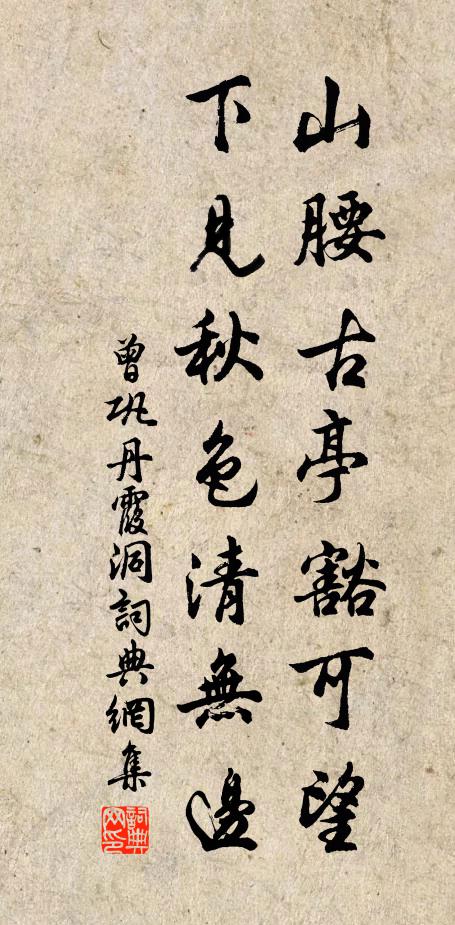 山腰古亭豁可望
下見秋色清無邊
曾巩丹霞洞詞典網集
詞典網印